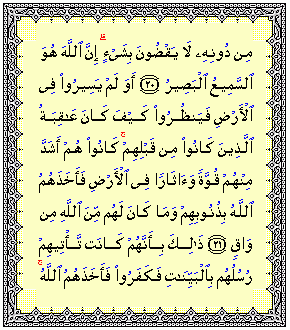 مِن دُونِهِۦ لَا يَقْضُونَ بِشَىْءٍ ۗ إِنَّ ٱللَّهَ هُوَ
ٱلسَّمِيعُ ٱلْبَصِيرُ ﴿٢٠﴾ أَوَ لَمْ يَسِيرُوا۟ فِى
ٱلْأَرْضِ فَيَنظُرُوا۟ كَيْفَ كَانَ عَٰقِبَةُ
ٱلَّذِينَ كَانُوا۟ مِن قَبْلِهِمْ ۚ كَانُوا۟ هُمْ أَشَدَّ
مِنْهُمْ قُوَّةً وَءَاثَارًا فِى ٱلْأَرْضِ فَأَخَذَهُمُ
ٱللَّهُ بِذُنُوبِهِمْ وَمَا كَانَ لَهُم مِّنَ ٱللَّهِ مِن
وَاقٍ ﴿٢١﴾ ذَٰلِكَ بِأَنَّهُمْ كَانَت تَّأْتِيهِمْ
رُسُلُهُم بِٱلْبَيِّنَٰتِ فَكَفَرُوا۟ فَأَخَذَهُمُ ٱللَّهُ ۚ